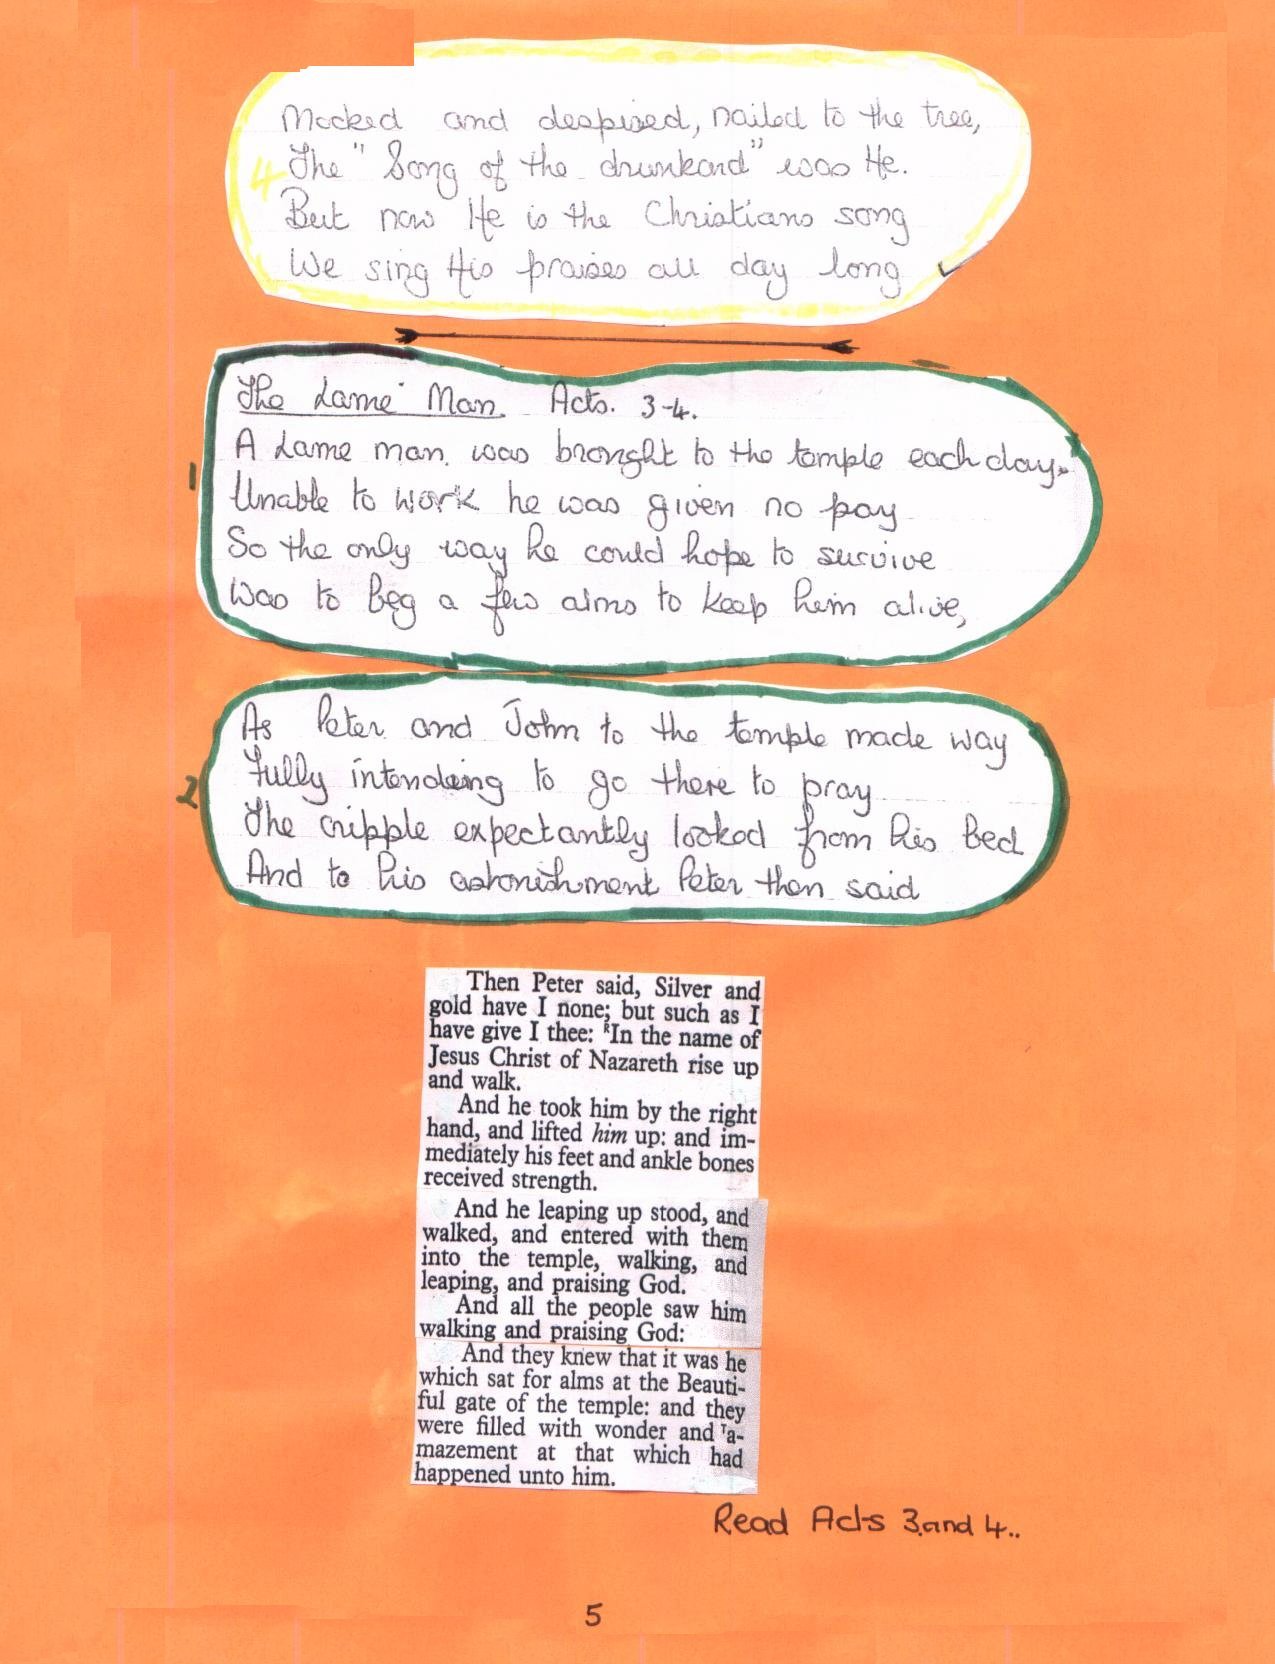 Mocked and despised, nailed to the tree,
4 The "Song of the drunkard" was He.
But now He is the Christians song
We sing His praises all day long
The Lame Man. Acts. 3-4.
1 A Lame man. was brought to the temple each day.
Unable to work he was given no pay
So the only way he could hope to survive
Was to beg a few alms to keep him alive,
As Peter and John to the temple made way
2 Fully intending to go there to pray
The cripple expectantly looked from his bed
And to his astonishment Peter then said
Then Peter said, Silver and
gold have I none; but such as I
have give I thee: ᴿIn the name of
Jesus Christ of Nazareth rise up
and walk.
And he took him by the right
hand, and lifted him up: and im-
mediately his feet and ankle bones
received strength.
And he leaping up stood, and
walked, and entered with them
into the temple, walking, and
leaping, and praising God.
And all the people saw him
walking and praising God:
And they knew that it was he
which sat for alms at the Beauti-
ful gate of the temple: and they
were filled with wonder and ᵀa-
mazement at that which had
happened unto him.
Read Acts 3 and 4..
5